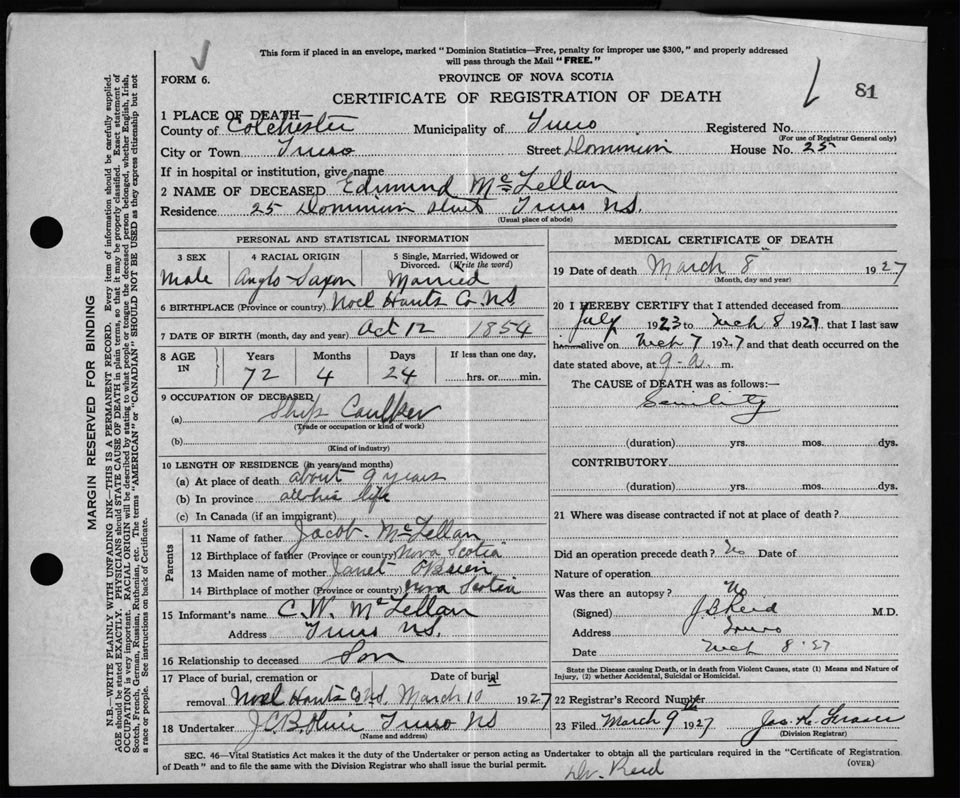 This form if placed in an envelope, marked "Dominion Statistics—Free, penalty for improper use $300," and properly addressed
will pass through the Mail "FREE."
FORM 6.
PROVINCE OF NOVA SCOTIA
81
CERTIFICATE OF REGISTRATION OF DEATH
1 PLACE OF DEATH—
County of Colchester Municipality of Truro Registered No.
(For use of Registrar General only)
City or Town Truro Street Dominion House No. 25
If in hospital or institution, give name
2 NAME OF DECEASED Edmund McLellan
Residence 25 Dominion Street Truro N.S.
(Usual place of abode)
PERSONAL AND STATISTICAL INFORMATION
3 SEX 4 RACIAL ORIGIN 5 Single, Married, Widowed or
Divorced. (Write the word)
Male Anglo-Saxon Married
6 BIRTHPLACE (Province or country) Noel Hants Co. N.S
7 DATE OF BIRTH (month, day and year) Oct 12 1854
8 AGE IN Years Months Days If less than one day,
72 4 24 hrs. or min.
9 OCCUPATION OF DECEASED
(a) Ship Caulker
(Trade or occupation or kind of work)
(b)
(Kind of industry)
10 LENGTH OF RESIDENCE (in years and months)
(a) At place of death about 9 years
(b) In province all his life
(c) In Canada (if an immigrant)
Parents
11 Name of father Jacob McLellan
12 Birthplace of father (Province or country) Nova Scotia
13 Maiden name of mother Janet O'Brien
14 Birthplace of mother (Province or country) Nova Scotia
15 Informant's name C. W. McLellan
Address Truro N.S.
16 Relationship to deceased Son
17 Place of burial, cremation or Date of burial
removal Noel Hants Co NS. March 10 1927
18 Undertaker Truro NS
(Name and address)
MEDICAL CERTIFICATE OF DEATH
19 Date of death March 8 1927
(Month, day and year)
20 I HEREBY CERTIFY that I attended deceased from
July 1923 to Mch 8 1927, that I last saw
him alive on Mch 7 1927 and that death occurred on the
date stated above, at 9 a. m.
The CAUSE of DEATH was as follows:—
Senility
(duration) yrs. mos. dys.
CONTRIBUTORY
(duration) yrs. mos. dys.
21 Where was disease contracted if not at place of death?
Did an operation precede death? No Date of
Nature of operation
Was there an autopsy? No
(Signed) Reid M.D.
Address Truro
Date Mch 8 27
State the Disease causing Death, or in death from Violent Causes, state (1) Means and Nature of
Injury, (2) whether Accidental, Suicidal or Homicidal.
22 Registrar's Record Number
23 Filed March 9th 1927 Jas. Fraser
(Division Registrar)
SEC. 46—Vital Statistics Act makes it the duty of the Undertaker or person acting as Undertaker to obtain all the particulars required in the "Certificate of Registration
of Death" and to file the same with the Division Registrar who shall issue the burial permit.
(OVER)
Dr. Reid
MARGIN RESERVED FOR BINDING
N.B—WRITE PLAINLY WITH UNFADING INK—THIS IS A PERMANENT RECORD. Every item of information should be carefully supplied.
AGE should be stated EXACTLY. PHYSICIANS should STATE CAUSE OF DEATH in plain terms, so that it may be properly classified. Exact statement of
OCCUPATION is very important. RACIAL ORIGIN will be described by stating to what people or tongue the deceased person belonged, whether English, Irish,
Scotch, French, German, Russian, Ruthenian, etc. The terms "AMERICAN" or "CANADIAN" SHOULD NOT BE USED as they express citizenship but not
a race or people. See instructions on back of Certificate.